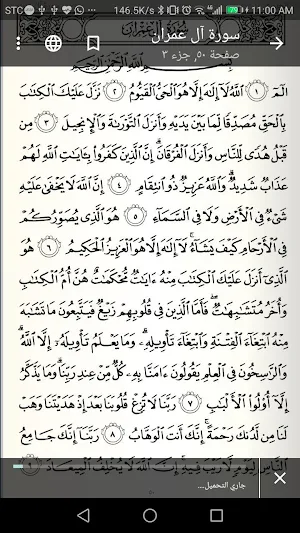 STC 146.5K/s 79 11:00 AM
سورة آل عمران
صفحة ٥٠, جزء ٣
بِسْمِ ٱللَّهِ ٱلرَّحْمَٰنِ ٱلرَّحِيمِ
الٓمٓ ١ ٱللَّهُ لَآ إِلَٰهَ إِلَّا هُوَ ٱلْحَىُّ ٱلْقَيُّومُ ٢ نَزَّلَ عَلَيْكَ ٱلْكِتَٰبَ
بِٱلْحَقِّ مُصَدِّقًا لِّمَا بَيْنَ يَدَيْهِ وَأَنزَلَ ٱلتَّوْرَىٰةَ وَٱلْإِنجِيلَ ٣ مِن
قَبْلُ هُدًى لِّلنَّاسِ وَأَنزَلَ ٱلْفُرْقَانَ ۗ إِنَّ ٱلَّذِينَ كَفَرُوا۟ بِـَٔايَٰتِ ٱللَّهِ لَهُمْ
عَذَابٌ شَدِيدٌ ۗ وَٱللَّهُ عَزِيزٌ ذُو ٱنتِقَامٍ ٤ إِنَّ ٱللَّهَ لَا يَخْفَىٰ عَلَيْهِ
شَىْءٌ فِى ٱلْأَرْضِ وَلَا فِى ٱلسَّمَآءِ ٥ هُوَ ٱلَّذِى يُصَوِّرُكُمْ
فِى ٱلْأَرْحَامِ كَيْفَ يَشَآءُ ۚ لَآ إِلَٰهَ إِلَّا هُوَ ٱلْعَزِيزُ ٱلْحَكِيمُ ٦ هُوَ
ٱلَّذِىٓ أَنزَلَ عَلَيْكَ ٱلْكِتَٰبَ مِنْهُ ءَايَٰتٌ مُّحْكَمَٰتٌ هُنَّ أُمُّ ٱلْكِتَٰبِ
وَأُخَرُ مُتَشَٰبِهَٰتٌ ۖ فَأَمَّا ٱلَّذِينَ فِى قُلُوبِهِمْ زَيْغٌ فَيَتَّبِعُونَ مَا تَشَٰبَهَ
مِنْهُ ٱبْتِغَآءَ ٱلْفِتْنَةِ وَٱبْتِغَآءَ تَأْوِيلِهِۦ ۗ وَمَا يَعْلَمُ تَأْوِيلَهُۥٓ إِلَّا ٱللَّهُ ۗ
وَٱلرَّٰسِخُونَ فِى ٱلْعِلْمِ يَقُولُونَ ءَامَنَّا بِهِۦ كُلٌّ مِّنْ عِندِ رَبِّنَا ۗ وَمَا يَذَّكَّرُ
إِلَّآ أُو۟لُوا۟ ٱلْأَلْبَٰبِ ٧ رَبَّنَا لَا تُزِغْ قُلُوبَنَا بَعْدَ إِذْ هَدَيْتَنَا وَهَبْ
لَنَا مِن لَّدُنكَ رَحْمَةً ۚ إِنَّكَ أَنتَ ٱلْوَهَّابُ ٨ رَبَّنَآ إِنَّكَ جَامِعُ
ٱلنَّاسِ لِيَوْمٍ لَّا رَيْبَ فِيهِ ۚ إِنَّ ٱللَّهَ لَا يُخْلِفُ ٱلْمِيعَادَ ٩
جاري التحميل...